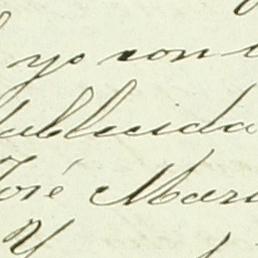 y yo con
tablecida
José Mari
Y